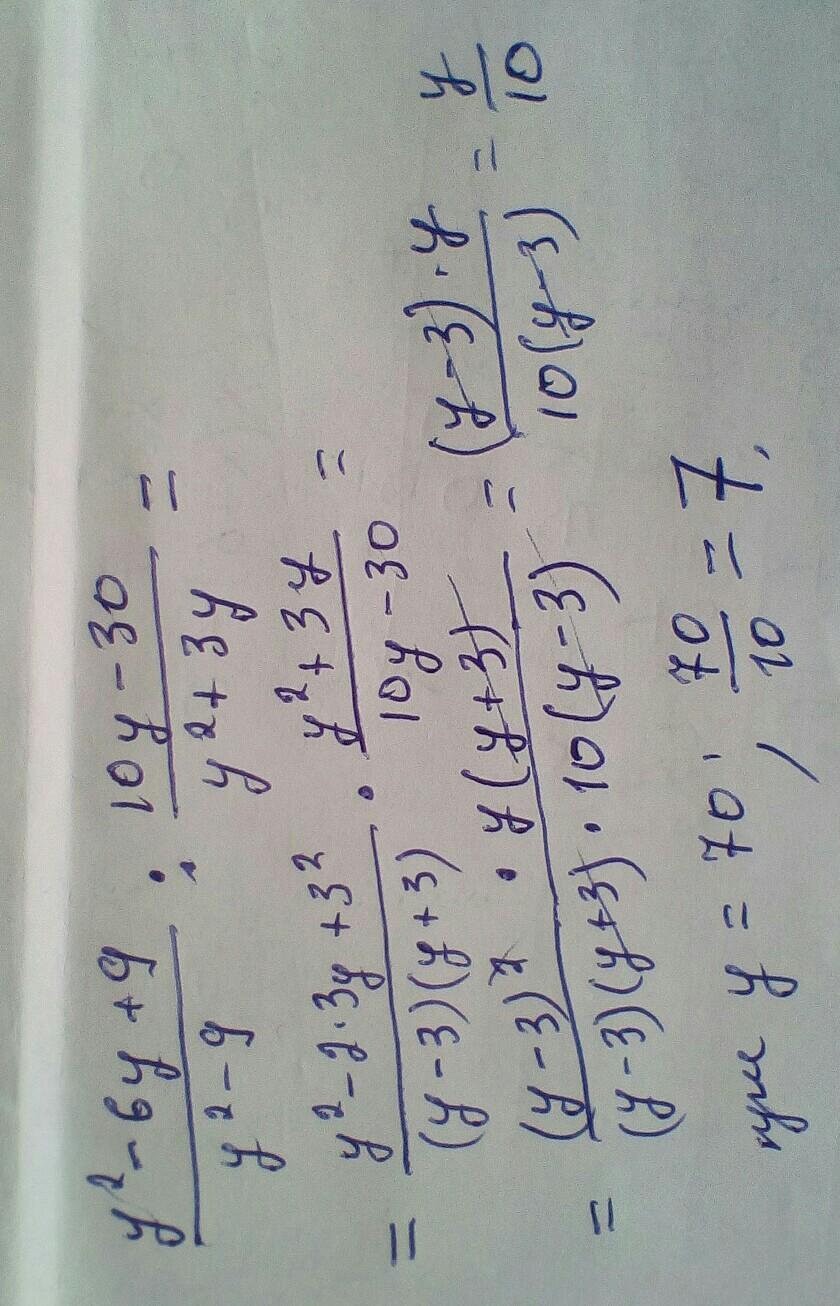 y²-6y+9/y²-9 : 10y-30/y²+3y =
= y²-2·3y+3²/(y-3)(y+3) · y²+3y/10y-30 =
= (y-3)²·y(y+3)/(y-3)(y+3)·10(y-3) = (y-3)·y/10(y-3) = y/10
при y = 70, 70/10 = 7.